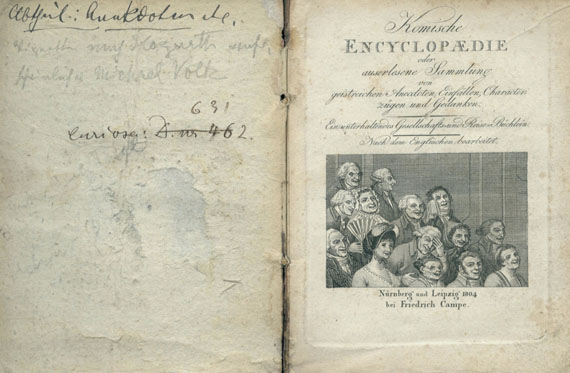 Abtheil.: Anekdoten etc.
nach Hogarth
Michael Volk
631
curiosa: D. nr. 462.
Komische
ENCYCLOPÆDIE
oder
auserlesene Sammlung
von
geistreichen Anecdoten, Einfällen, Character
zügen und Gedanken.
Ein unterhaltendes Gesellschafts- und Reise-Büchlein.
Nach dem Englischen bearbeitet.
Nürnberg und Leipzig 1804
bei Friedrich Campe.